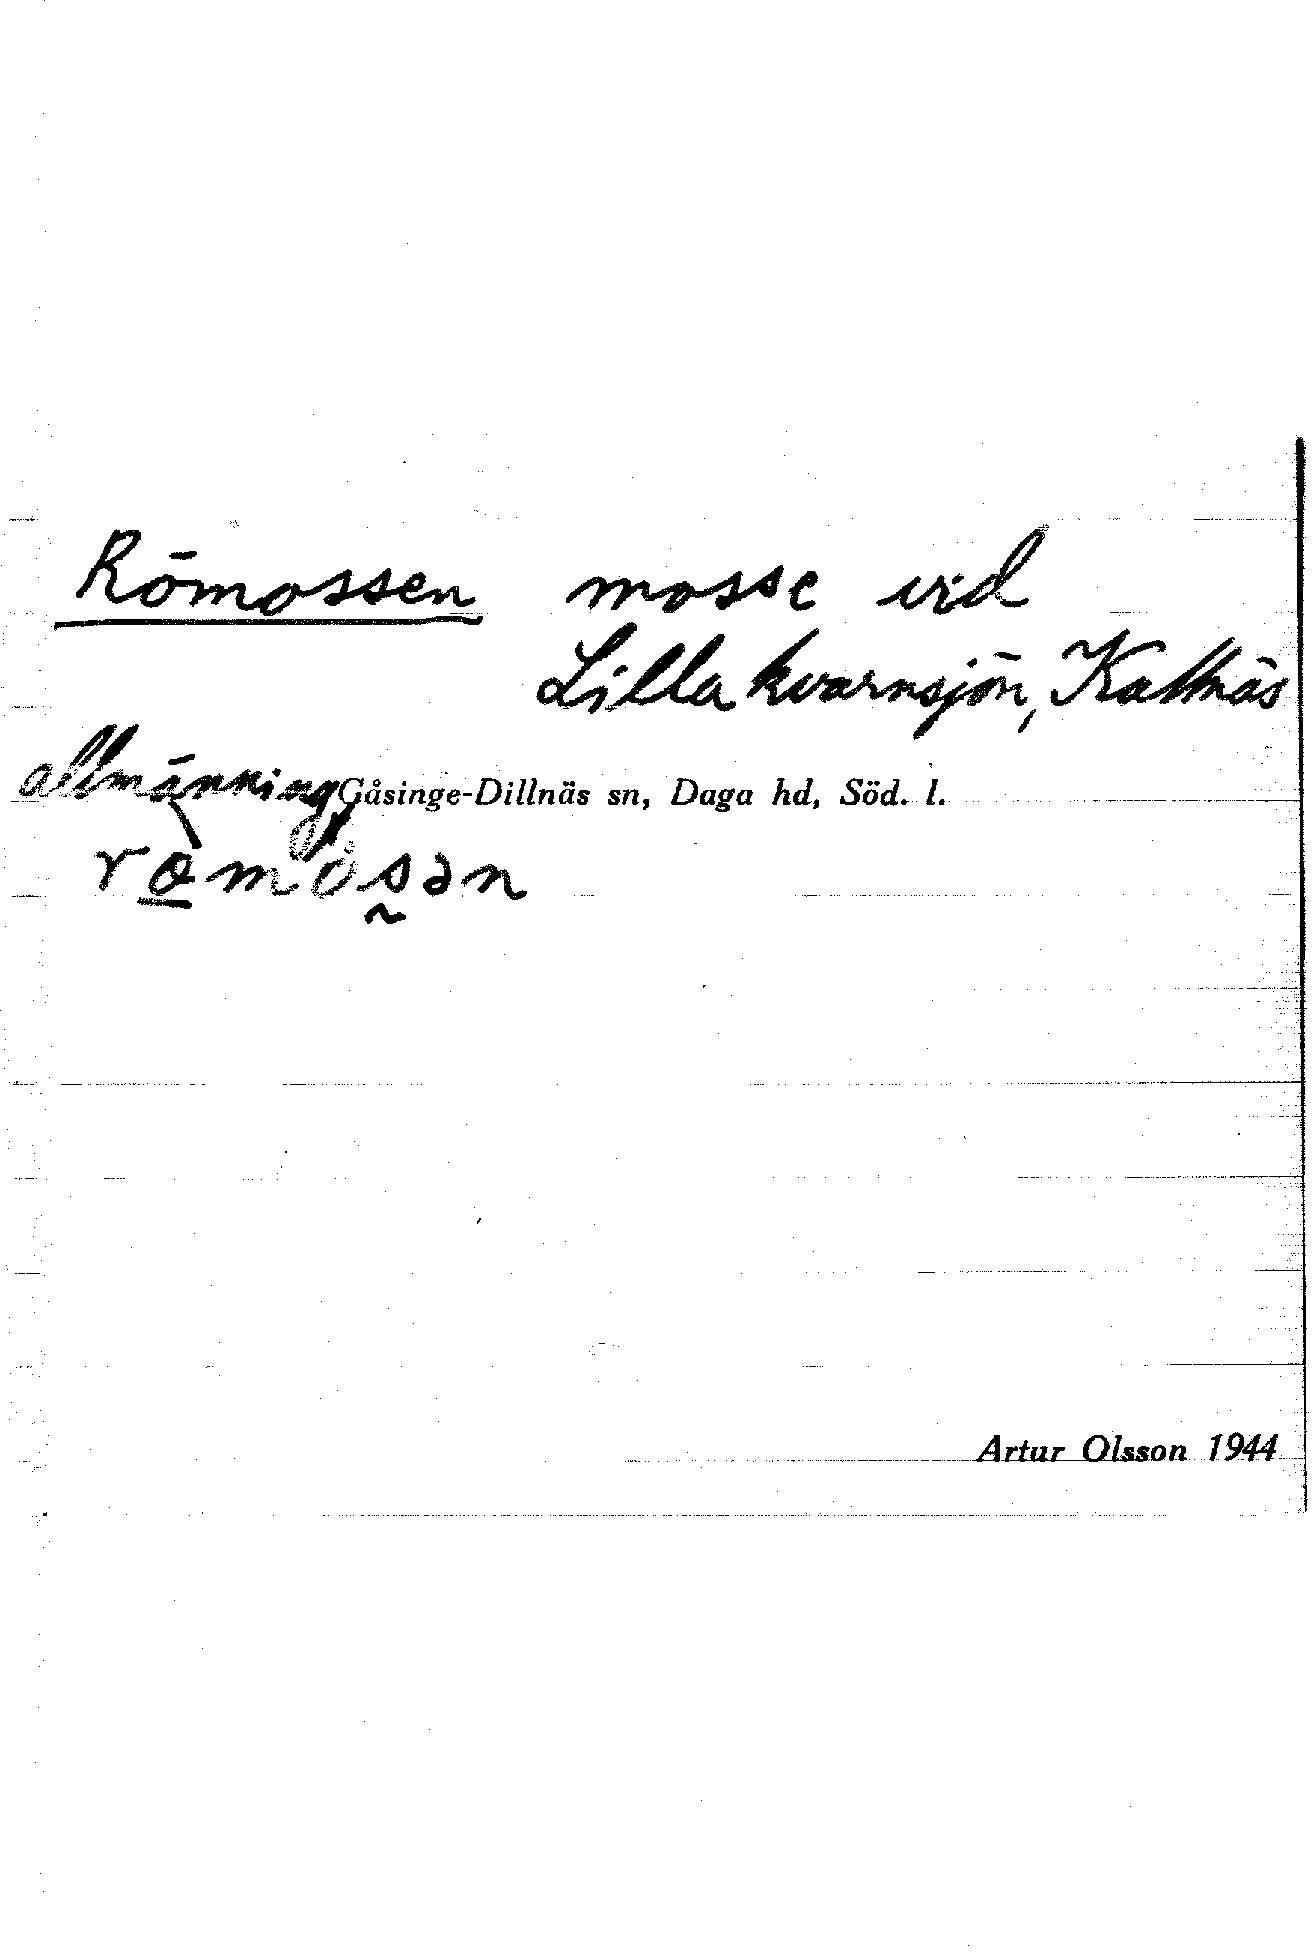 Römossen mosse vid
Lilla kvarnsjön, Kattnäs
allmänning Gåsinge-Dillnäs sn, Daga hd, Söd. l.
Artur Olsson 1944